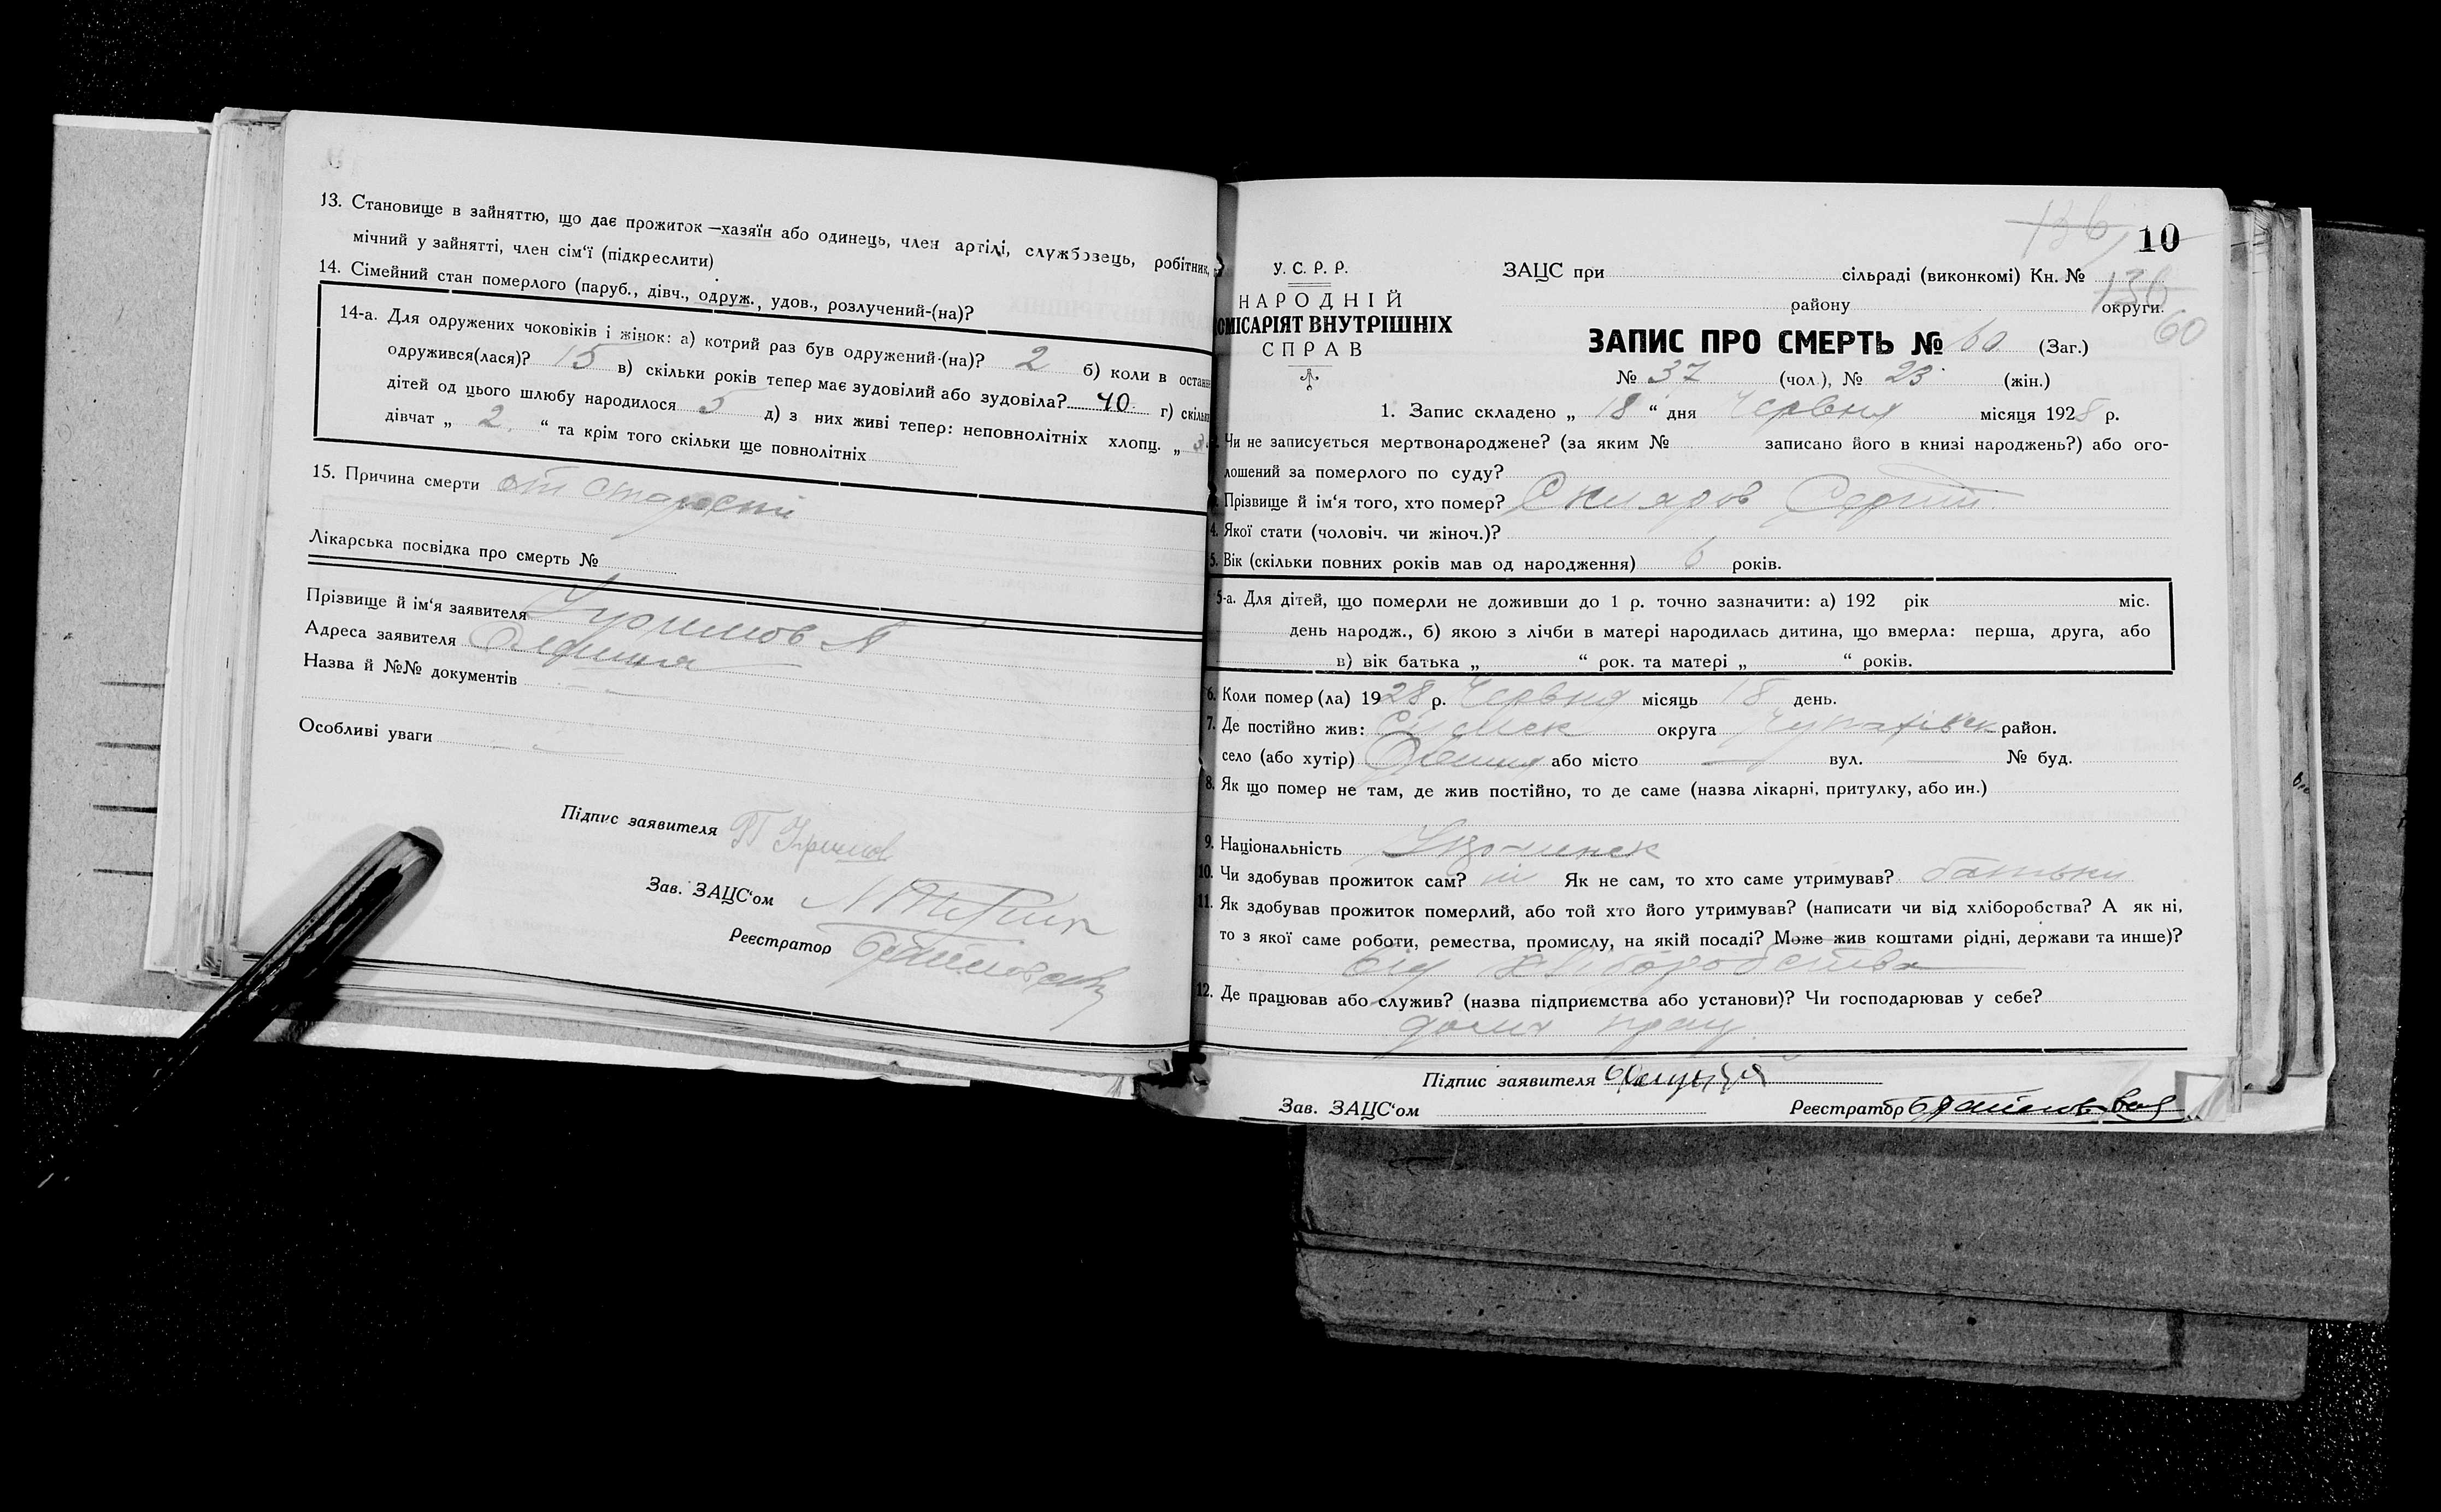 13. Становище в зайняттю, що дає прожиток —хазяїн або одинець, член артілі, службовець, робітник,
мічний у зайнятті, член сім'ї (підкреслити)
14. Сімейний стан померлого (паруб., дівч., одруж., удов., розлучений-(на)?
14-а. Для одружених чоковіків і жінок: а) котрий раз був одружений-(на)? 2 б) коли в остан
одружився(лася)? 15 в) скільки років тепер має зудовілий або зудовіла? 40 г) скільки
дітей од цього шлюбу народилося 5 д) з них живі тепер: неповнолітніх хлопц. „ 3
дівчат „ 2 “ та крім того скільки ще повнолітніх
15. Причина смерти от старості
Лікарська посвідка про смерть №
Прізвище й ім'я заявителя
Адреса заявителя
Назва й №№ документів
Особливі уваги
Підпис заявителя
Зав. ЗАЦС'ом
Реєстратор
136 10
У. С. Р. Р.
НАРОДНІЙ
ОМІСАРІЯТ ВНУТРІШНІХ
СПРАВ
ЗАЦС при сільраді (виконкомі) Кн. № 136
району округи.
60
ЗАПИС ПРО СМЕРТЬ № 60 (Заг.)
№ 37 (чол.), № 23 (жін.)
1. Запис складено „ 18 “ дня Червня місяця 1928 р.
Чи не записується мертвонароджене? (за яким № записано його в книзі народжень?) або ого-
лошений за померлого по суду?
Прізвище й ім'я того, хто помер? Скляров Сергий
4. Якої стати (чоловіч. чи жіноч.)?
5. Вік (скільки повних років мав од народження) 6 років.
5-а. Для дітей, що померли не доживши до 1 р. точно зазначити: а) 192 рік міс.
день народж., б) якою з лічби в матері народилась дитина, що вмерла: перша, друга, або
в) вік батька „ “ рок. та матері „ “ років.
6. Коли помер (ла) 1928 р. Червня місяць 18 день.
7. Де постійно жив: Сумск округа Чупахівск район.
село (або хутір) або місто — вул. — № буд.
8. Як що помер не там, де жив постійно, то де саме (назва лікарні, притулку, або ин.)
9. Національність Украинск
10. Чи здобував прожиток сам? ні Як не сам, то хто саме утримував? батьки
11. Як здобував прожиток померлий, або той хто його утримував? (написати чи від хліборобства? А як ні,
то з якої саме роботи, ремества, промислу, на якій посаді? Може жив коштами рідні, держави та инше)?
від хліборобства
12. Де працював або служив? (назва підприємства або установи)? Чи господарював у себе?
дома прац
Підпис заявителя
Зав. ЗАЦС'ом Реєстратор